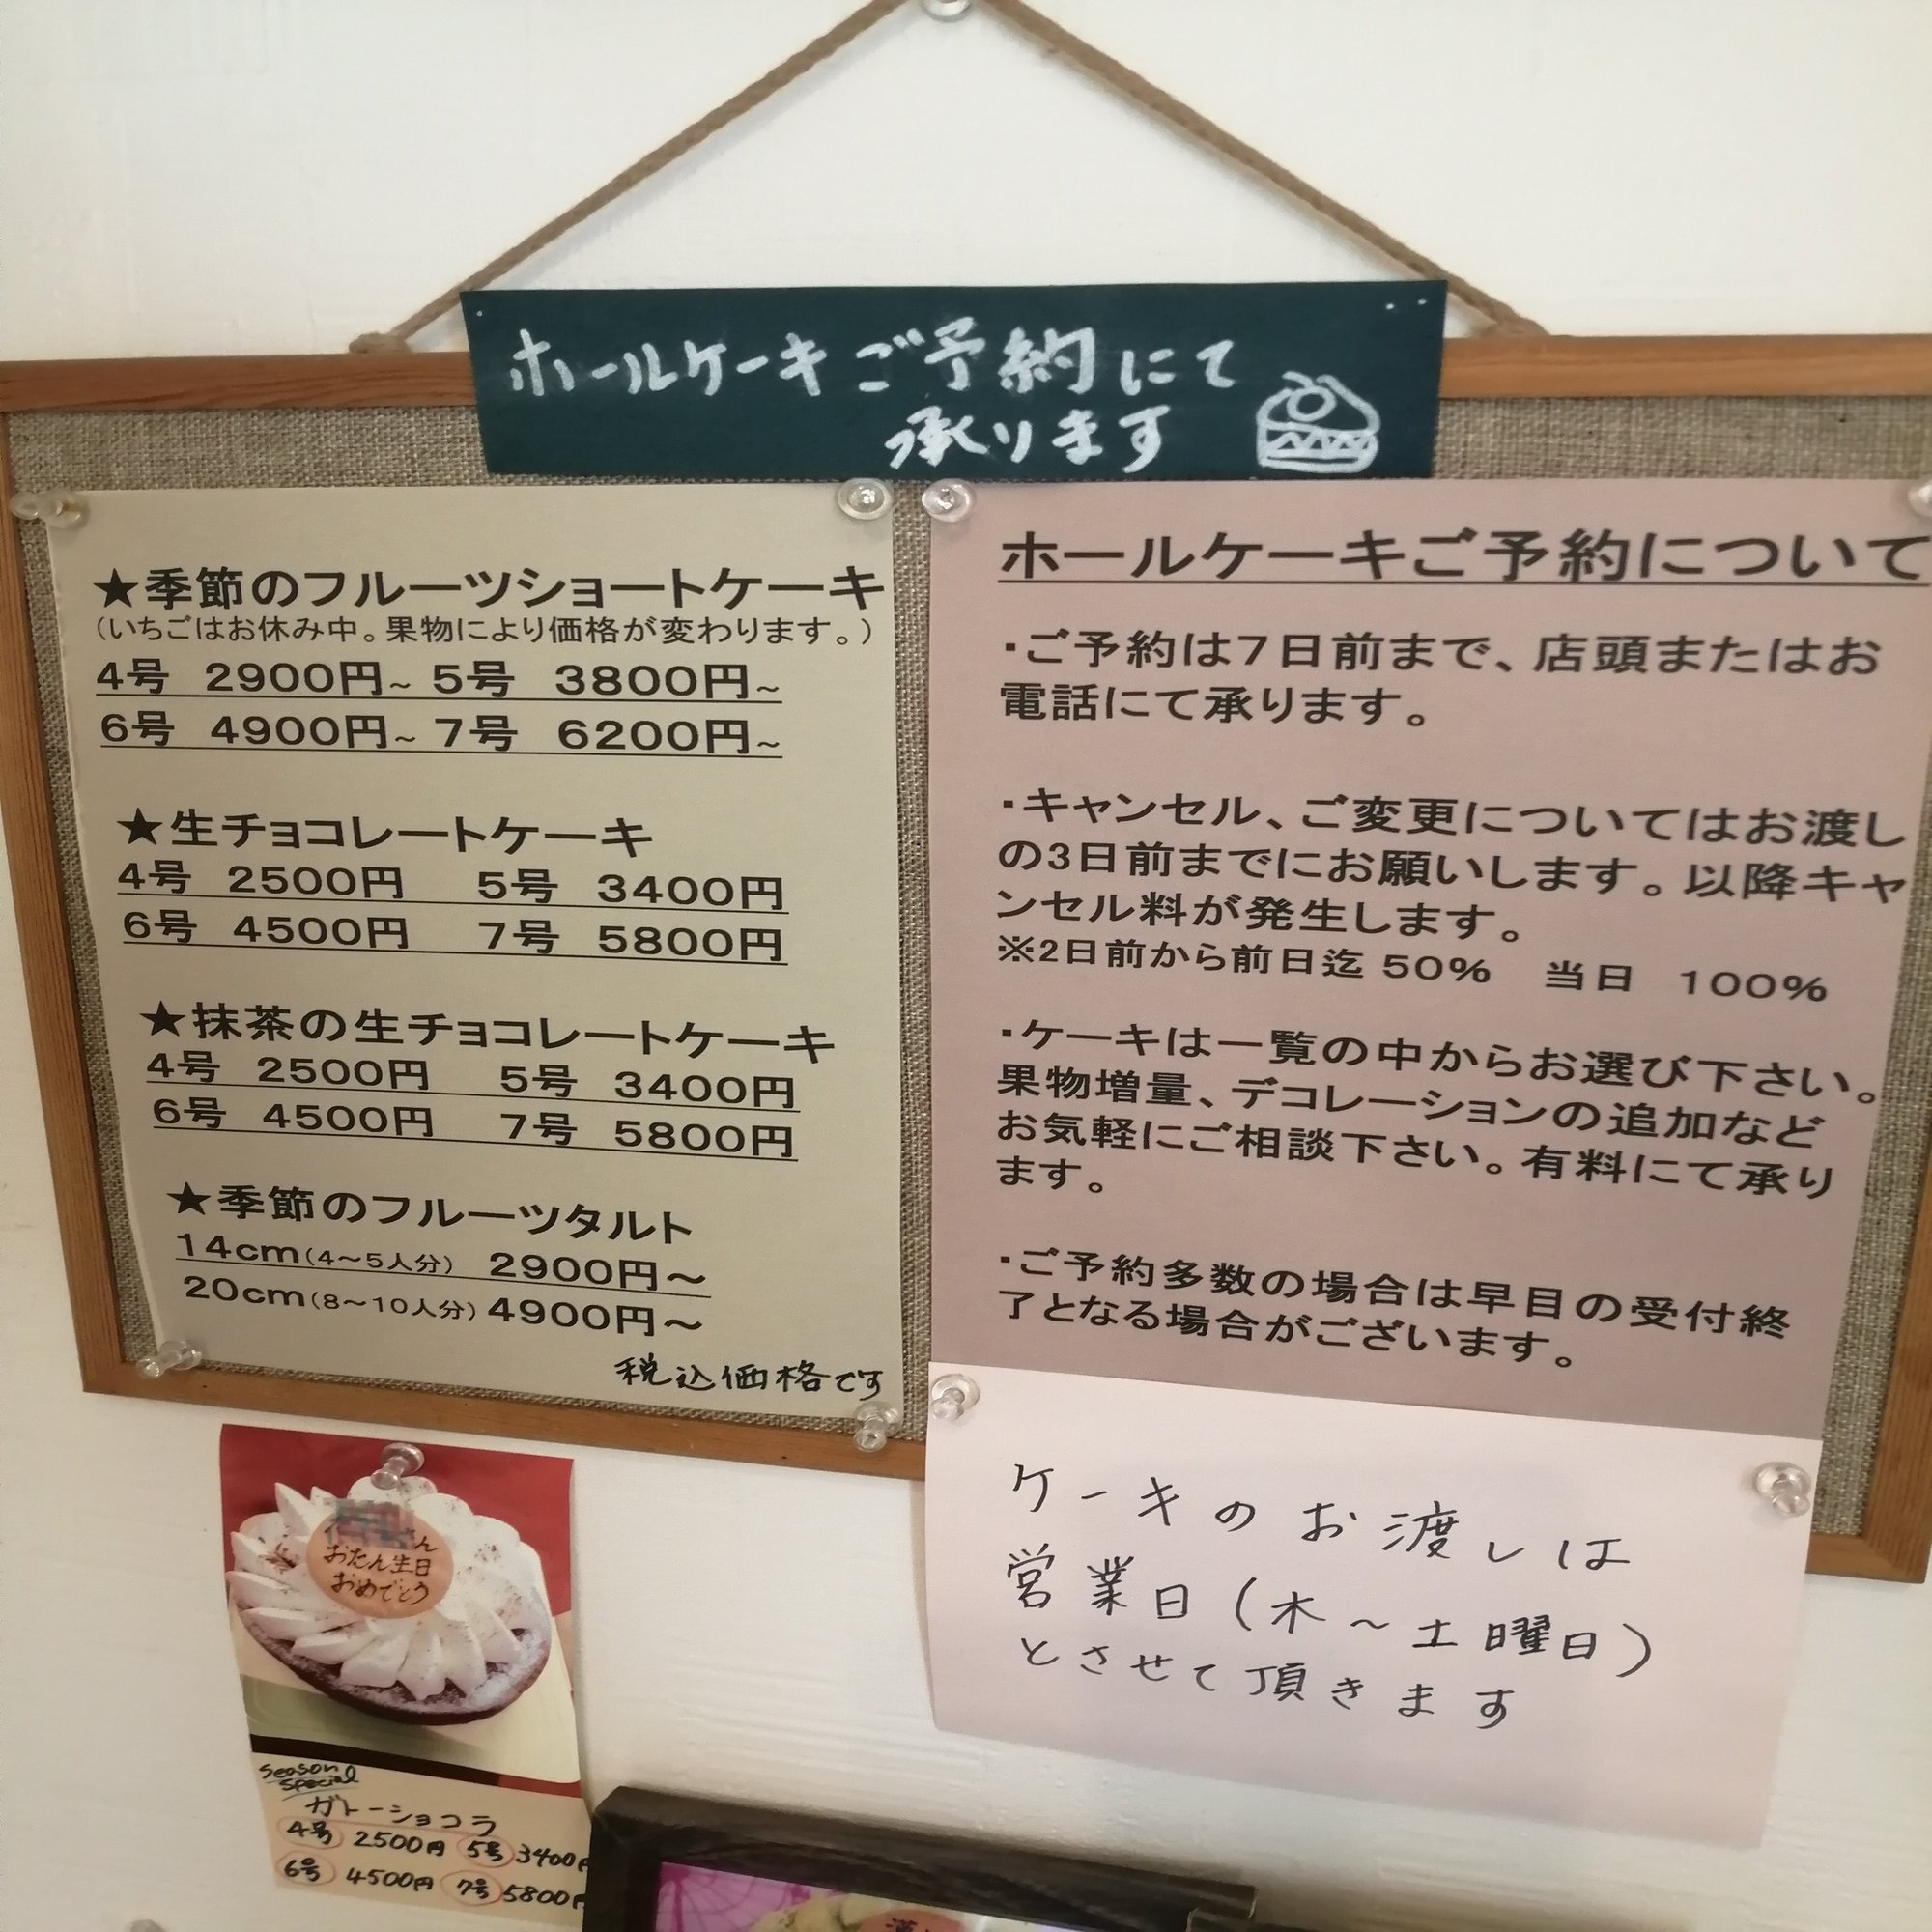 ホールケーキご予約にて
承ります
★季節のフルーツショートケーキ
(いちごはお休み中。果物により価格が変わります。)
4号 2900円~ 5号 3800円~
6号 4900円~ 7号 6200円~
★生チョコレートケーキ
4号 2500円 5号 3400円
6号 4500円 7号 5800円
★抹茶の生チョコレートケーキ
4号 2500円 5号 3400円
6号 4500円 7号 5800円
★季節のフルーツタルト
14cm(4～5人分) 2900円～
20cm(8～10人分) 4900円～
税込価格です
ホールケーキご予約について
・ご予約は7日前まで、店頭またはお
電話にて承ります。
・キャンセル、ご変更についてはお渡し
の3日前までにお願いします。以降キャ
ンセル料が発生します。
※2日前から前日迄 50% 当日 100%
・ケーキは一覧の中からお選び下さい。
果物増量、デコレーションの追加など
お気軽にご相談下さい。有料にて承り
ます。
・ご予約多数の場合は早目の受付終
了となる場合がございます。
ケーキのお渡しは
営業日(木～土曜日)
とさせて頂きます
さん
おたん生日
おめでとう
Season
Special
ガトーショコラ
4号 2500円 5号 3400円
6号 4500円 7号 5800円